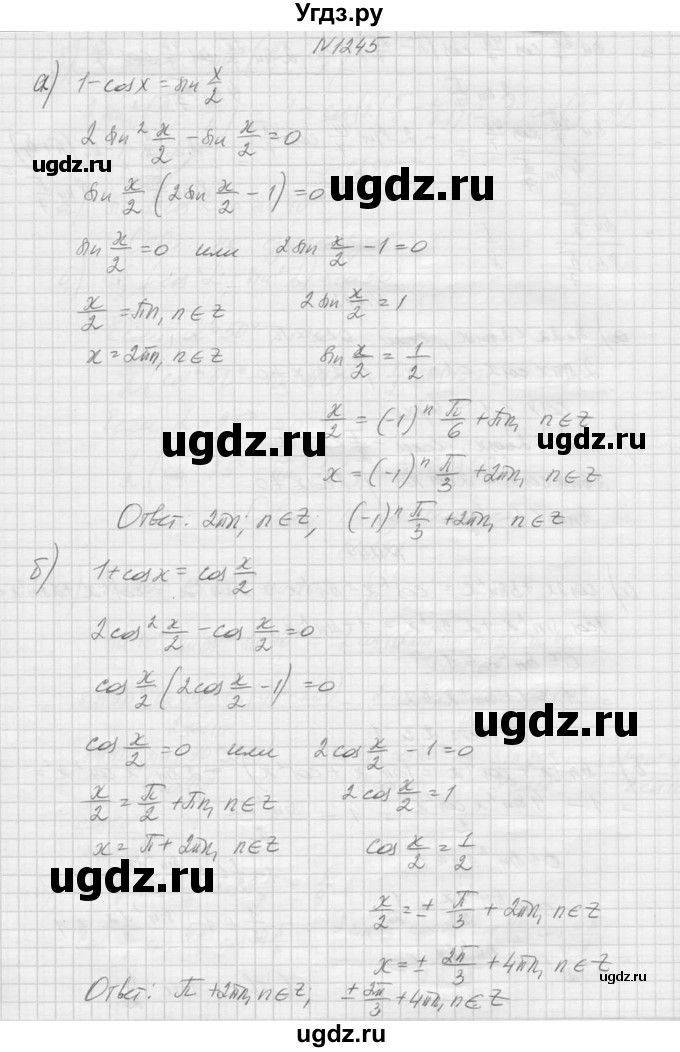 Угдз.ру
N1245
а) 1 - cosx = sin x/2
2 sin² x/2 - sin x/2 = 0
ugdz.ru ugdz.ru
sin x/2 (2 sin x/2 - 1) = 0
ugdz.ru
sin x/2 = 0 или 2 sin x/2 - 1 = 0
x/2 = πn, n ∈ Z 2 sin x/2 = 1
x = 2πn, n ∈ Z sin x/2 = 1/2
x/2 = (-1)ⁿ π/6 + πn, n ∈ Z
ugdz.ru ugdz.ru
x = (-1)ⁿ π/3 + 2πn, n ∈ Z
Ответ. 2πn; n ∈ Z; (-1)ⁿ π/3 + 2πn, n ∈ Z
б) 1 + cosx = cos x/2
2cos² x/2 - cos x/2 = 0
cos x/2 (2cos x/2 - 1) = 0
ugdz.ru
cos x/2 = 0 или 2cos x/2 - 1 = 0
x/2 = π/2 + πn, n ∈ Z 2cos x/2 = 1
x = π + 2πn, n ∈ Z cos x/2 = 1/2
ugdz.ru
x/2 = ± π/3 + 2πn, n ∈ Z
x = ± 2π/3 + 4πn, n ∈ Z
Ответ: π + 2πn, n ∈ Z; ± 2π/3 + 4πn, n ∈ Z
ugdz.ru